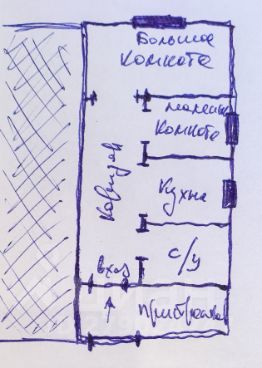 Большая
комната
маленьк
комната
Коридор
Кухня
с/у
вход